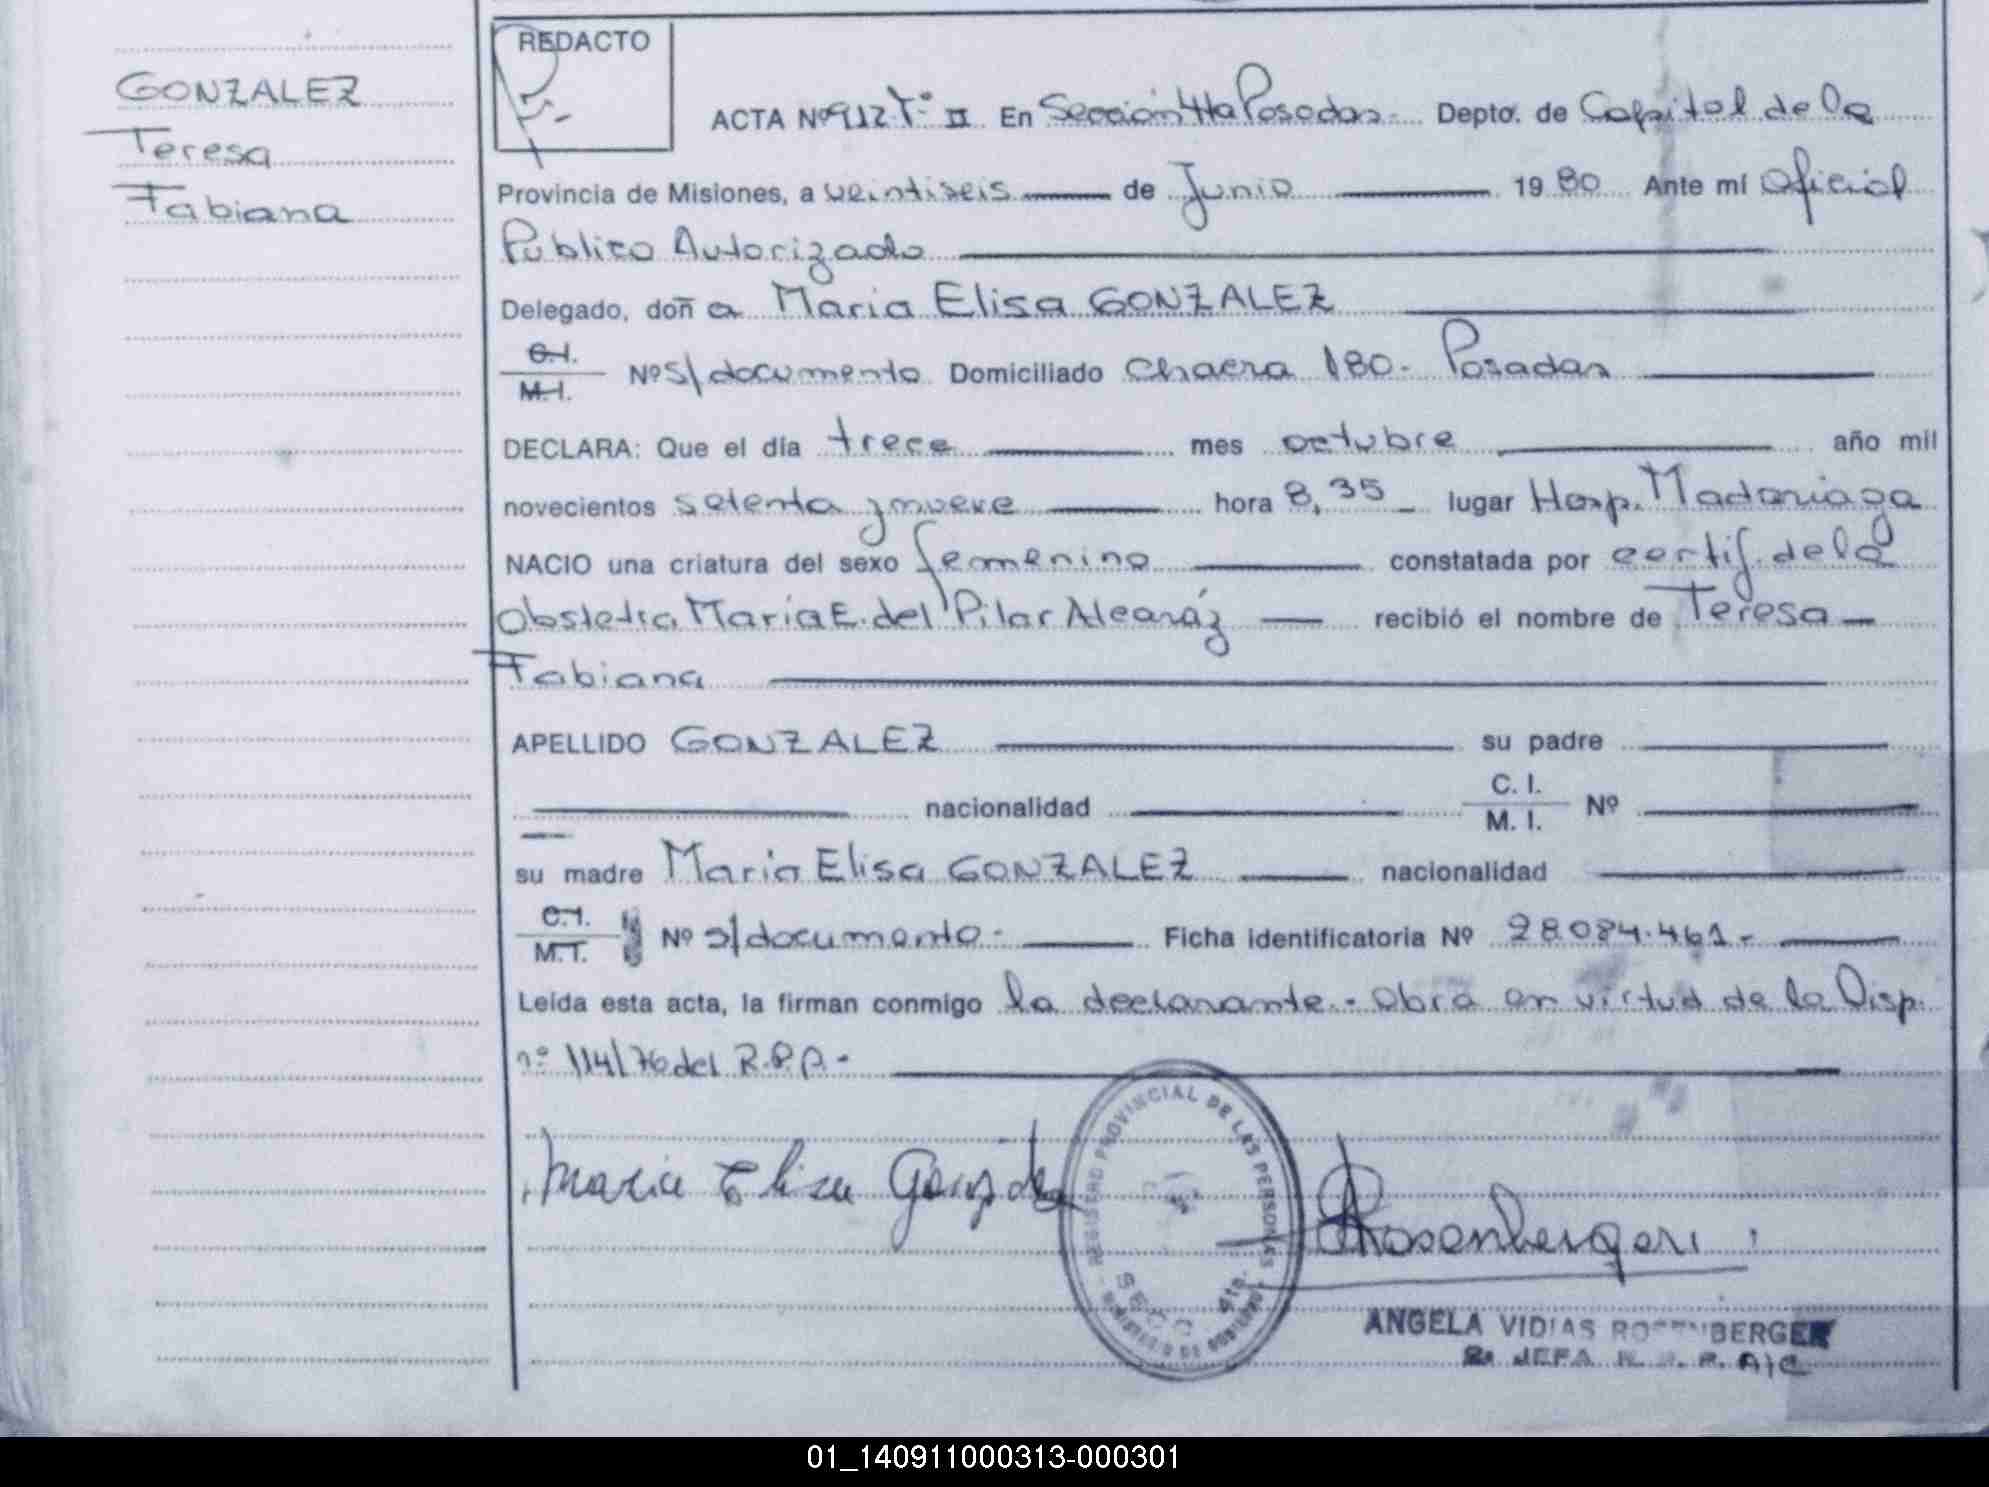 GONZALEZ
Teresa
Fabiana
REDACTO
ACTA Nº 912 Tº II En Sección 4ta Posadas.- Depto. de Capital de la
Provincia de Misiones, a veintiseis de Junio 1980 Ante mí Oficial
Público Autorizado
Delegado, doña Maria Elisa GONZALEZ
C.I.
M.I. Nº s/documento Domiciliado Chacra 180- Posadas
DECLARA: Que el día trece mes octubre año mil
novecientos setenta y nueve hora 8,35 lugar Hosp. Madariaga
NACIO una criatura del sexo femenino constatada por certif. de la
Obstetra María E. del Pilar Alcaráz recibió el nombre de Teresa
Fabiana
APELLIDO GONZALEZ su padre
nacionalidad C. I.
M. I. Nº
su madre Maria Elisa GONZALEZ nacionalidad
C.I.
M.I. Nº s/documento- Ficha identificatoria Nº 28.084.461-
Leída esta acta, la firman conmigo la declarante.- Obra en virtud de la Disp.
nº 114/76 del R.P.P.-
Maria Elisa Gonzalez
REGISTRO PROVINCIAL DE LAS PERSONAS
SECC 4ta.
MINISTERIO DE GOBIERNO
Rosenberger
ANGELA VIDIAS ROSENBERGER
JEFA R. P. P. A/C
01_140911000313-000301